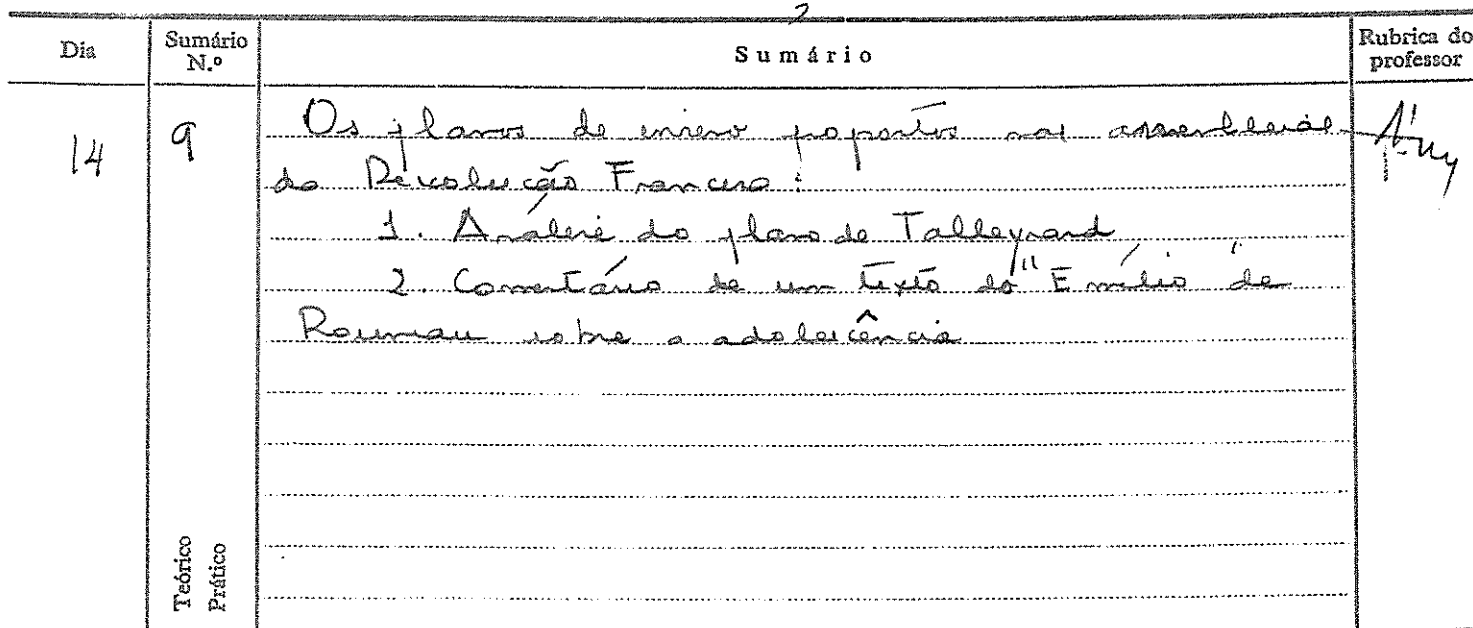 Dia
Sumário
N.º
Sumário
Rubrica do
professor
14
9
Os planos de ensino propostos nas assembleias
da Revolução Francesa:
1. Análise do plano de Talleyrand
2. Comentário de um texto do "Emílio" de
Rousseau sobre a adolescência
Teórico
Prático